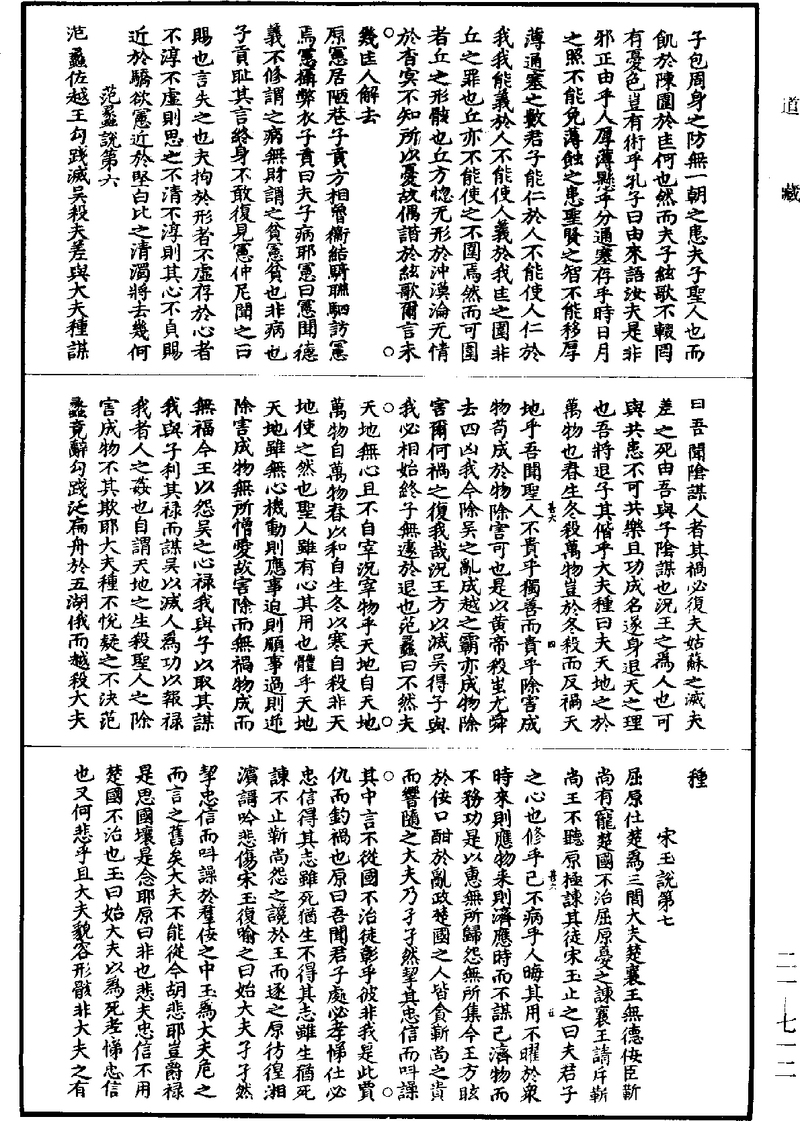 道藏
子包周身之防無一朝之患夫子聖人也而
飢於陳圍於匡何也然而夫子絃歌不輟罔
有憂色豈有術乎孔子曰由來語汝夫是非
邪正由乎人厚薄懸乎分通塞存乎時日月
之照不能免薄蝕之患聖賢之智不能移厚
薄通塞之數君子能仁於人不能使人仁於
我我能義於人不能使人義於我匡之圍非
丘之罪也丘亦不能使之不圍焉然而可圍
者丘之形骸也丘方惚无形於沖漠淪无情
於杳冥不知所以憂故偶諧於絃歌爾言未
幾匡人解去
原憲居陋巷子貢方相魯衛結駟聯駟訪憲
焉憲攝弊衣子貢曰夫子病耶憲曰憲聞德
義不修謂之病無財謂之貧憲貧也非病也
子貢恥其言終身不敢復見憲仲尼聞之曰
賜也言失之也夫拘於形者不虛存於心者
不淳不虛則思之不清不淳則其心不貞賜
近於驕欲憲近於堅白比之清濁將去幾何
范蠡說第六
范蠡佐越王勾踐滅吳殺夫差與大夫種謀
曰吾聞陰謀人者其禍必復夫姑蘇之滅夫
差之死由吾與子陰謀也況王之為人也可
與共患不可共樂且功成名遂身退天之理
也吾將退子其偕乎大夫種曰夫天地之於
萬物也春生冬殺萬物豈於冬殺而反禍天
地乎吾聞聖人不貴乎獨善而貴乎除害成
物苟成於物除害可也是以黃帝殺蚩尤舜
去四凶我今除吳之亂成越之霸亦成物除
害爾何禍之復我哉況王方以滅吳得子與
我必相始終子無遽於退也范蠡曰不然夫
天地無心且不自宰況宰物乎天地自天地
萬物自萬物春以和自生冬以寒自殺非天
地使之然也聖人雖有心其用也體乎天地
天地雖無心機動則應事迫則順事過則逆
除害成物無所憎愛故害除而無禍物成而
無福今王以怨吳之心祿我與子以取其謀
我與子利其祿而謀吳以滅人為功以報祿
我者人之姦也自謂天地之生殺聖人之除
害成物不其欺耶大夫種不悅疑之不決范
蠡竟辭勾踐泛扁舟於五湖俄而越殺大夫
種
宋玉說第七
屈原仕楚為三閭大夫楚襄王無德佞臣靳
尚有寵楚國不治屈原憂之諫襄王請斥靳
尚王不聽原極諫其徒宋玉止之曰夫君子
之心也修乎己不病乎人晦其用不曜於眾
時來則應物來則濟應時而不謀己濟物而
不務功是以惠無所歸怨無所集今王方眩
於佞口酣於亂政楚國之人皆貪靳尚之貴
而響隨之大夫乃孑孑然挈其忠信而叫譟
其中言不從國不治徒彰乎彼非我是此賈
仇而釣禍也原曰吾聞君子處必孝悌仕必
忠信得其志雖死猶生不得其志雖生猶死
諫不止靳尚怨之讒於王而逐之原彷徨湘
濱謌吟悲傷宋玉復喻之曰始大夫孑孑然
挈忠信而叫譟於羣佞之中玉為大夫危之
而言之舊矣大夫不能從今胡悲耶豈爵祿
是思國壞是念耶原曰非也悲夫忠信不用
楚國不治也玉曰始大夫以為死孝悌忠信
也又何悲乎且大夫貌容形骸非大夫之有
二一—七一二